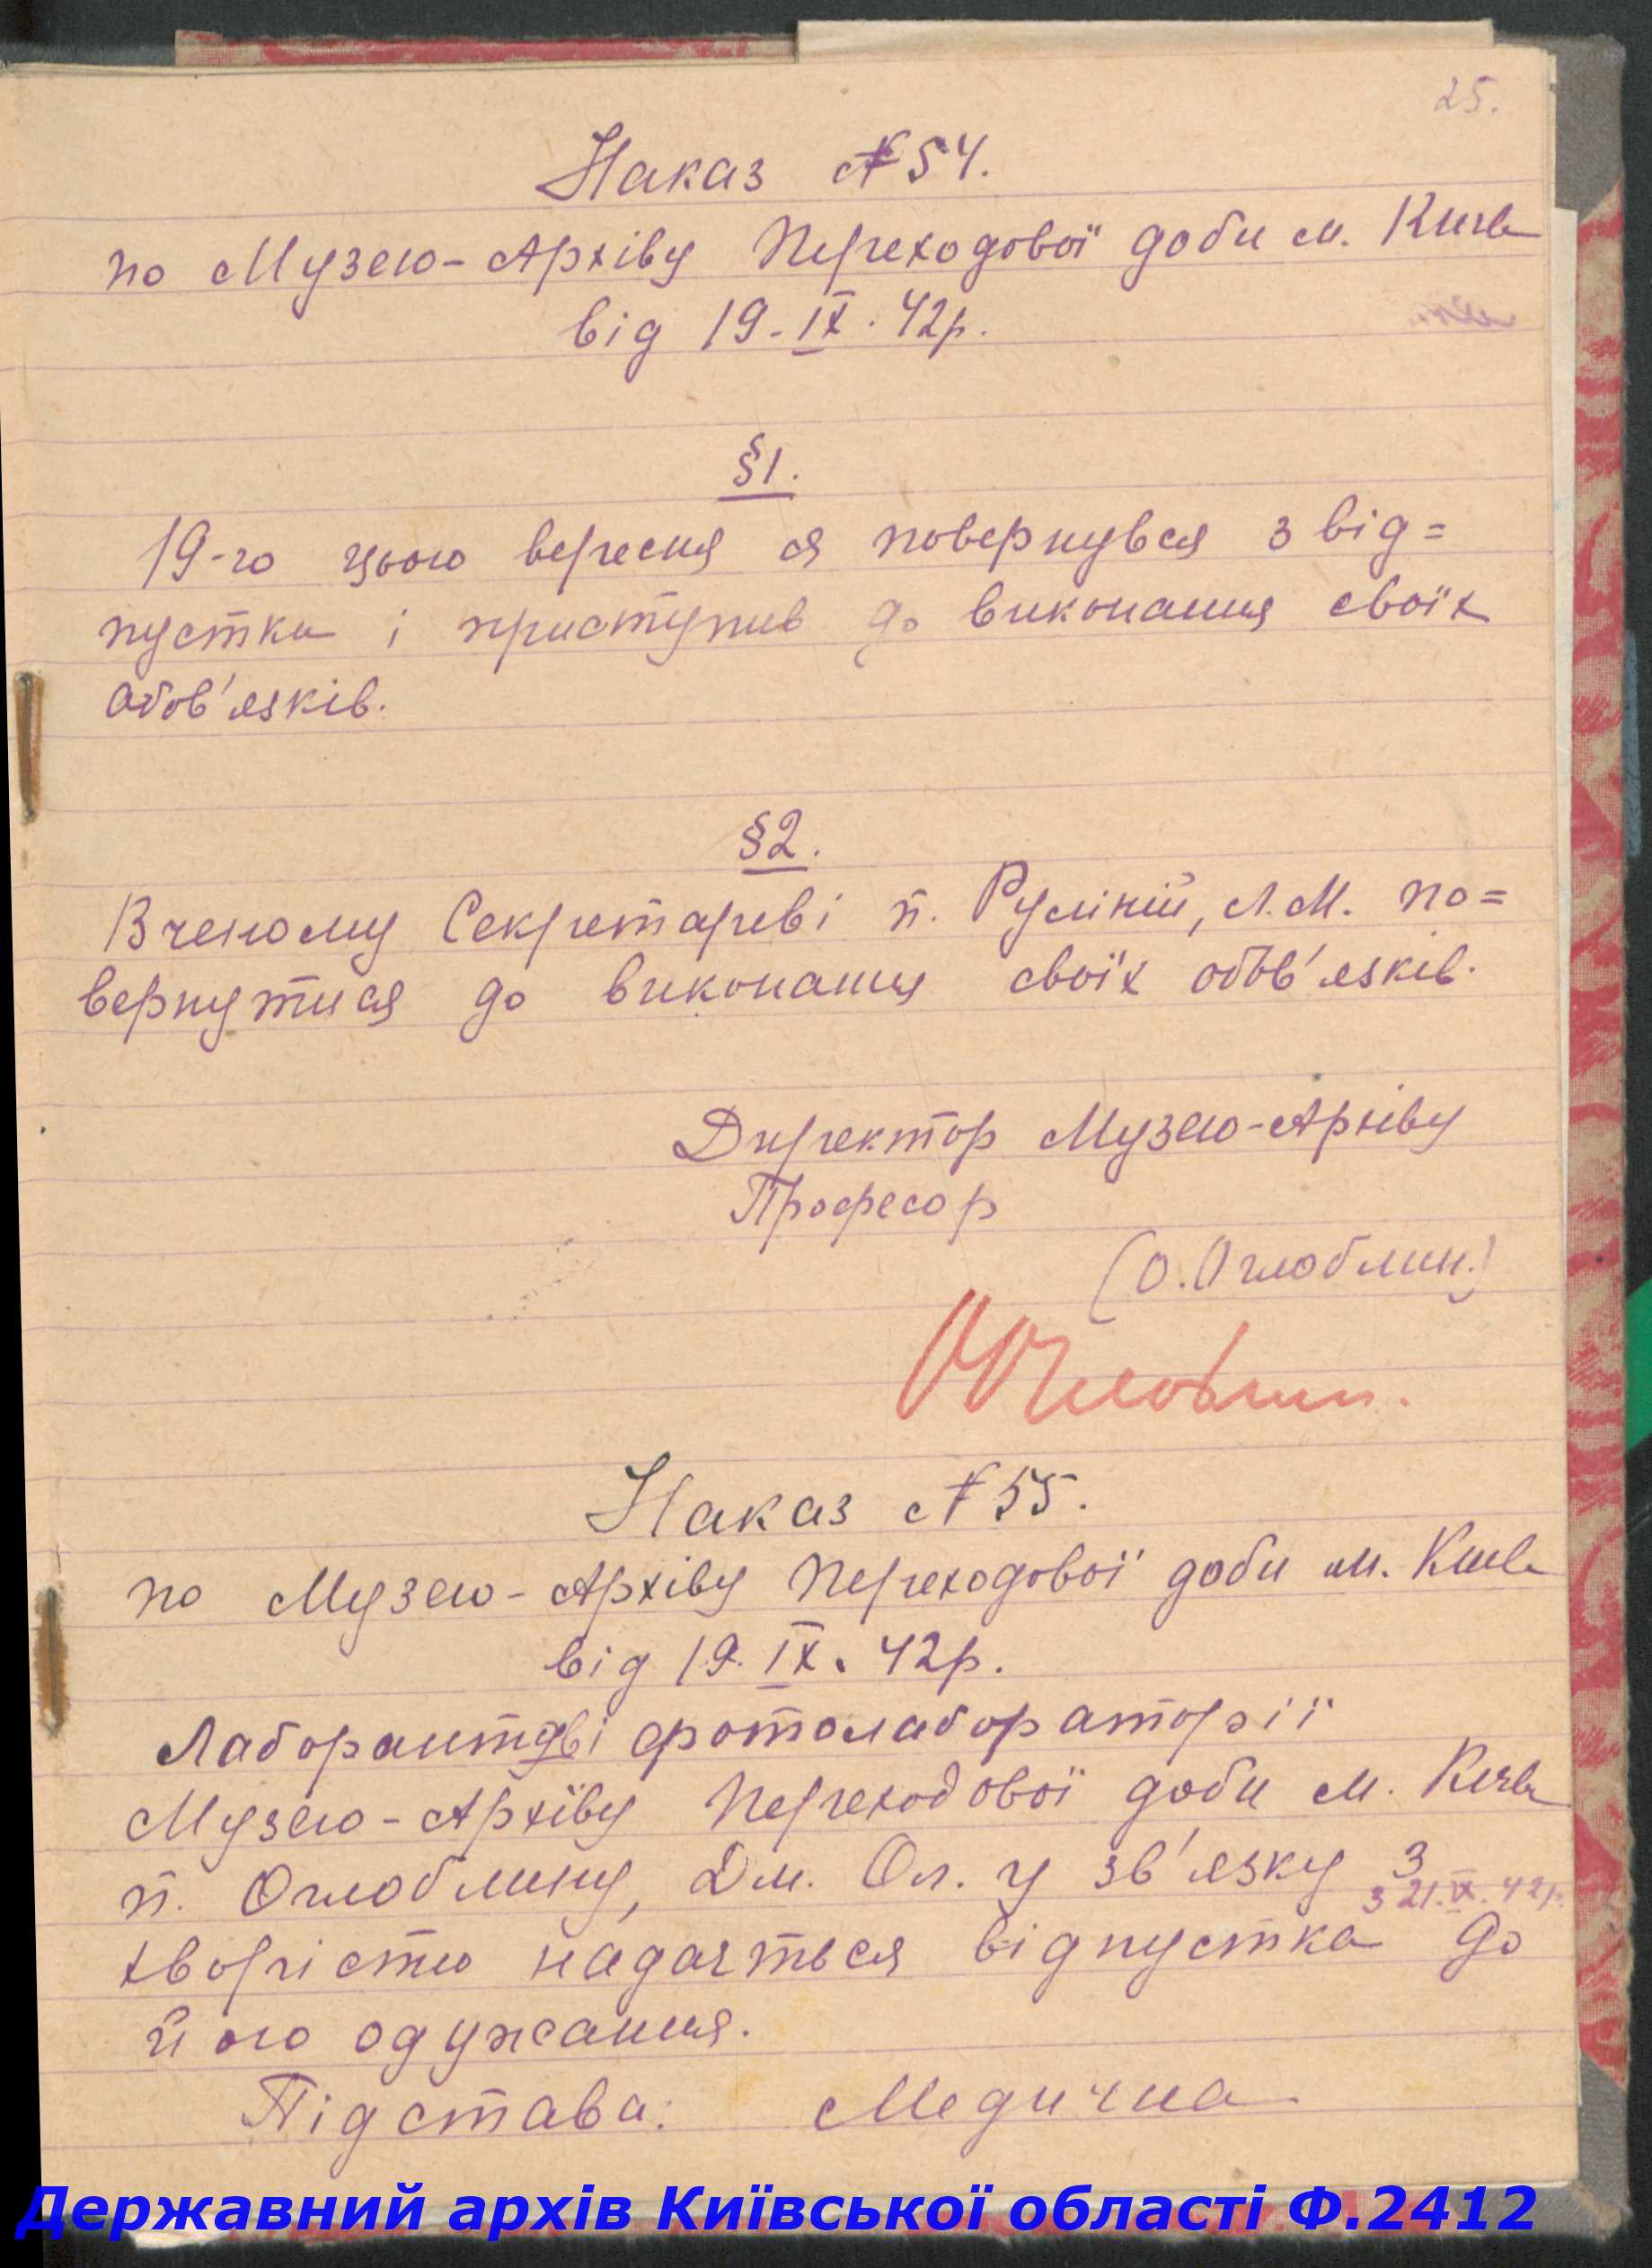 25.
Наказ № 54.
по Музею-Архіву Переходової доби м. Києва
від 19-IX.42р.
§1.
19-го цього вересня я повернувся з від=
пустки і приступив до виконання своїх
обов'язків.
§2.
Вченому Секретареві п. Руліній, Л.М. по=
вернутися до виконання своїх обов'язків.
Директор Музею-Архіву
Професор
(О. Оглоблин.)
О Оглоблин.
Наказ № 55.
по Музею-Архіву Переходової доби м. Києва
від 19.IX.42р.
Лаборантові фотолабораторії
Музею-Архіву Переходової доби м. Києва
п. Оглоблину, Дм. Ол. у зв'язку з
з 21.IX.42р.
хворістю надається відпустка до
його одужання.
Підстава: Медична
Державний архів Київської області Ф.2412